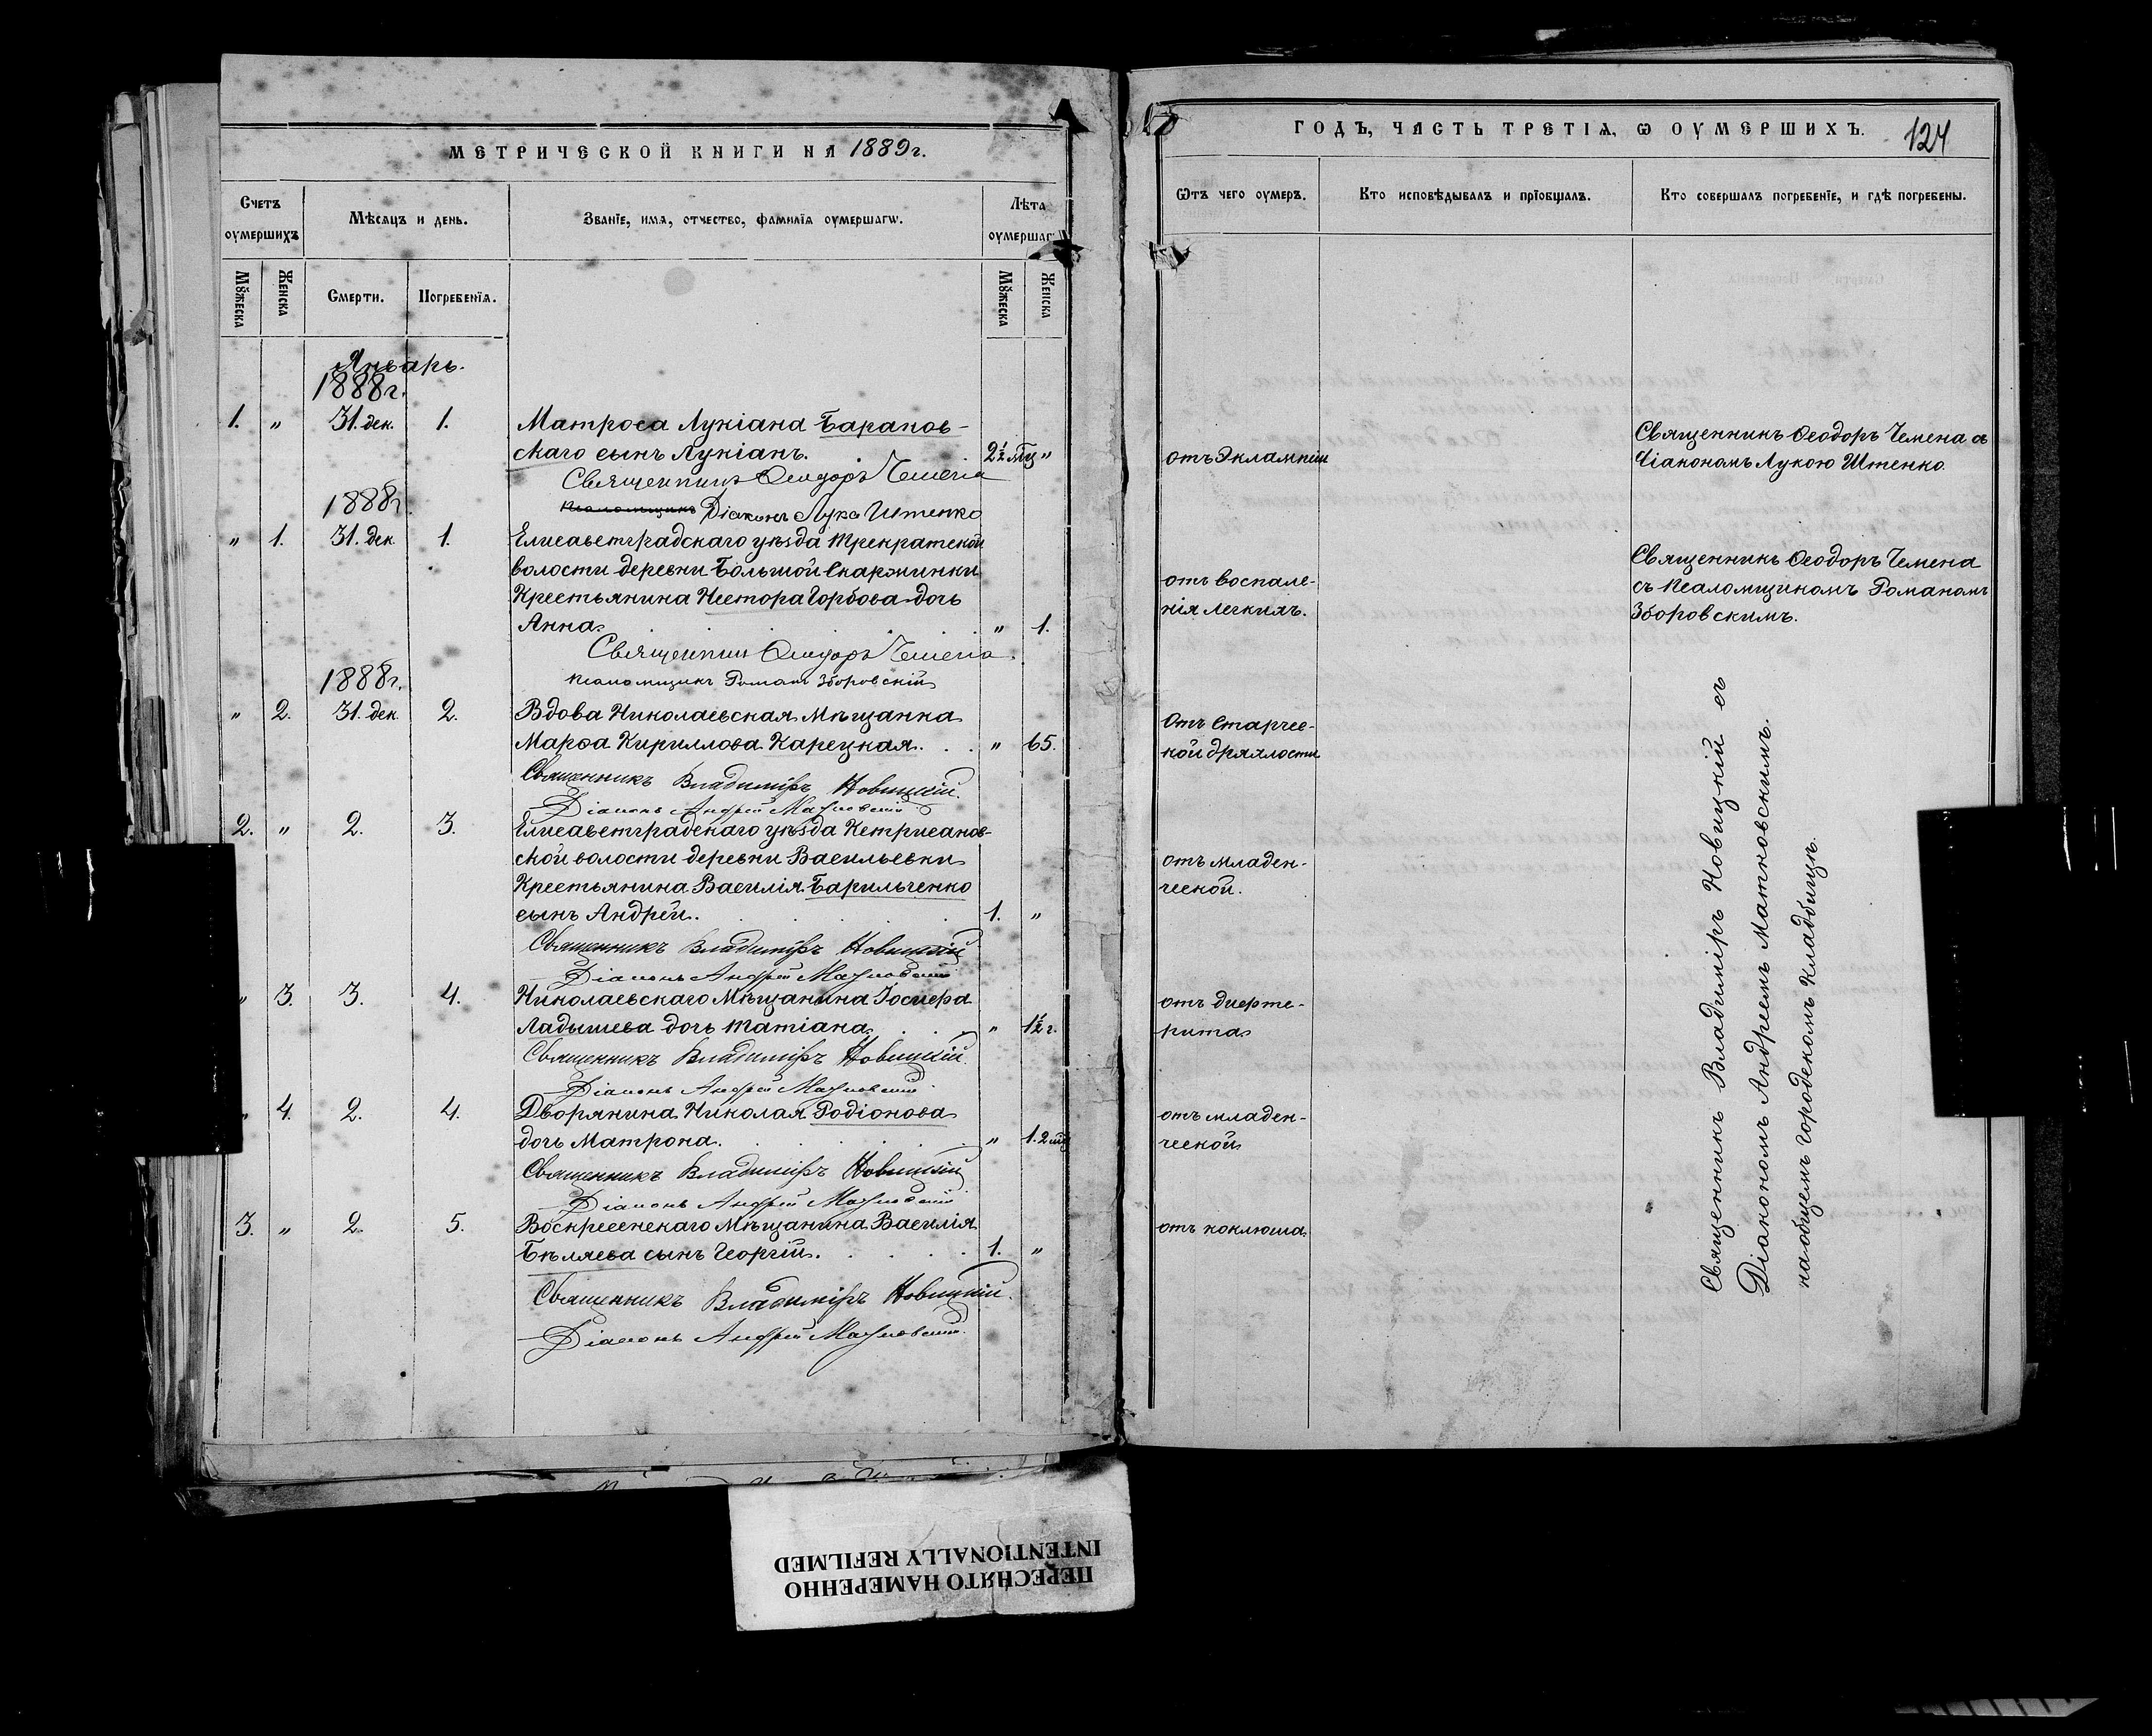 МЕТРИЧЕСКОЙ КНИГИ НА 1889 г.
Счетъ оумершихъ
Мѣсяцъ и день.
Званїе, имя, отчество, фамилїя оумершагѡ.
Лѣта оумершаг
Мꙋжеска
Женска
Смерти.
Погребенїя.
Мꙋжеска
Женска
Январь.
1888 г.
1. " 31. дек. 1. Матроса Лукіана Баранов-
скаго сынъ Лукіанъ. 2½ мц "
Священникъ Ѳеодоръ Чемена
Псаломщикъ Діаконъ Лука Штенко
1888 г.
" 1. 31. дек. 1. Елисаветградскаго уѣзда Трикратской
волости деревни Большой Скаржинки
Крестьянина Нестора Горбова дочь
Анна. " 1.
Священник Ѳеодоръ Чемена
Псаломщикъ Романъ Зборовскій
1888 г.
" 2. 31. дек. 2. Вдова Николаевская Мѣщанка
Марѳа Кириллова Карецкая. " 65.
Священникъ Владиміръ Новицкій.
Діаконъ Андрей Матковскій
2. " 2. 3. Елисаветградскаго уѣзда Кетрисанов-
ской волости деревни Васильевки
Крестьянина Василія Барильченко
сынъ Андрей. 1. "
Священникъ Владиміръ Новицкій
Діаконъ Андрей Матковскій
" 3. 3. 4. Николаевскаго Мѣщанина Іосифа
Ладышева дочь Татіана. " 1½ г.
Священникъ Владиміръ Новицкій.
Діаконъ Андрей Матковскій
" 4. 2. 4. Дворянина Николая Родіонова
дочь Матрона. " 1. 2 мц
Священникъ Владиміръ Новицкій
Діаконъ Андрей Матковскій
3. " 2. 5. Воскресенскаго Мѣщанина Василія
Бѣляева сынъ Георгій. 1. "
Священникъ Владиміръ Новицкій.
Діаконъ Андрей Матковскій.
ГОДЪ, ЧАСТЬ ТРЕТІЯ, Ѡ ОУМЕРШИХЪ. 124
Ѿтъ чего оумеръ.
Кто исповѣдывалъ и прїобщалъ.
Кто совершалъ погребенїе, и гдѣ погребены.
отъ Экламп­сіи
Священникъ Ѳеодоръ Чемена съ
Діакономъ Лукою Штенко.
отъ воспале-
нія легкихъ.
Священникъ Ѳеодоръ Чемена
съ Псаломщикомъ Романомъ
Зборовскимъ.
Отъ старчес-
кой дряхлости
отъ младен-
ческой.
отъ дифте-
рита
отъ младен-
ческой
отъ коклюша
Священникъ Владиміръ Новицкій съ
Діакономъ Андреемъ Матковскимъ.
на общемъ городскомъ кладбищѣ.
ПЕРЕСНЯТО НАМЕРЕННО
INTENTIONALLY REFILMED